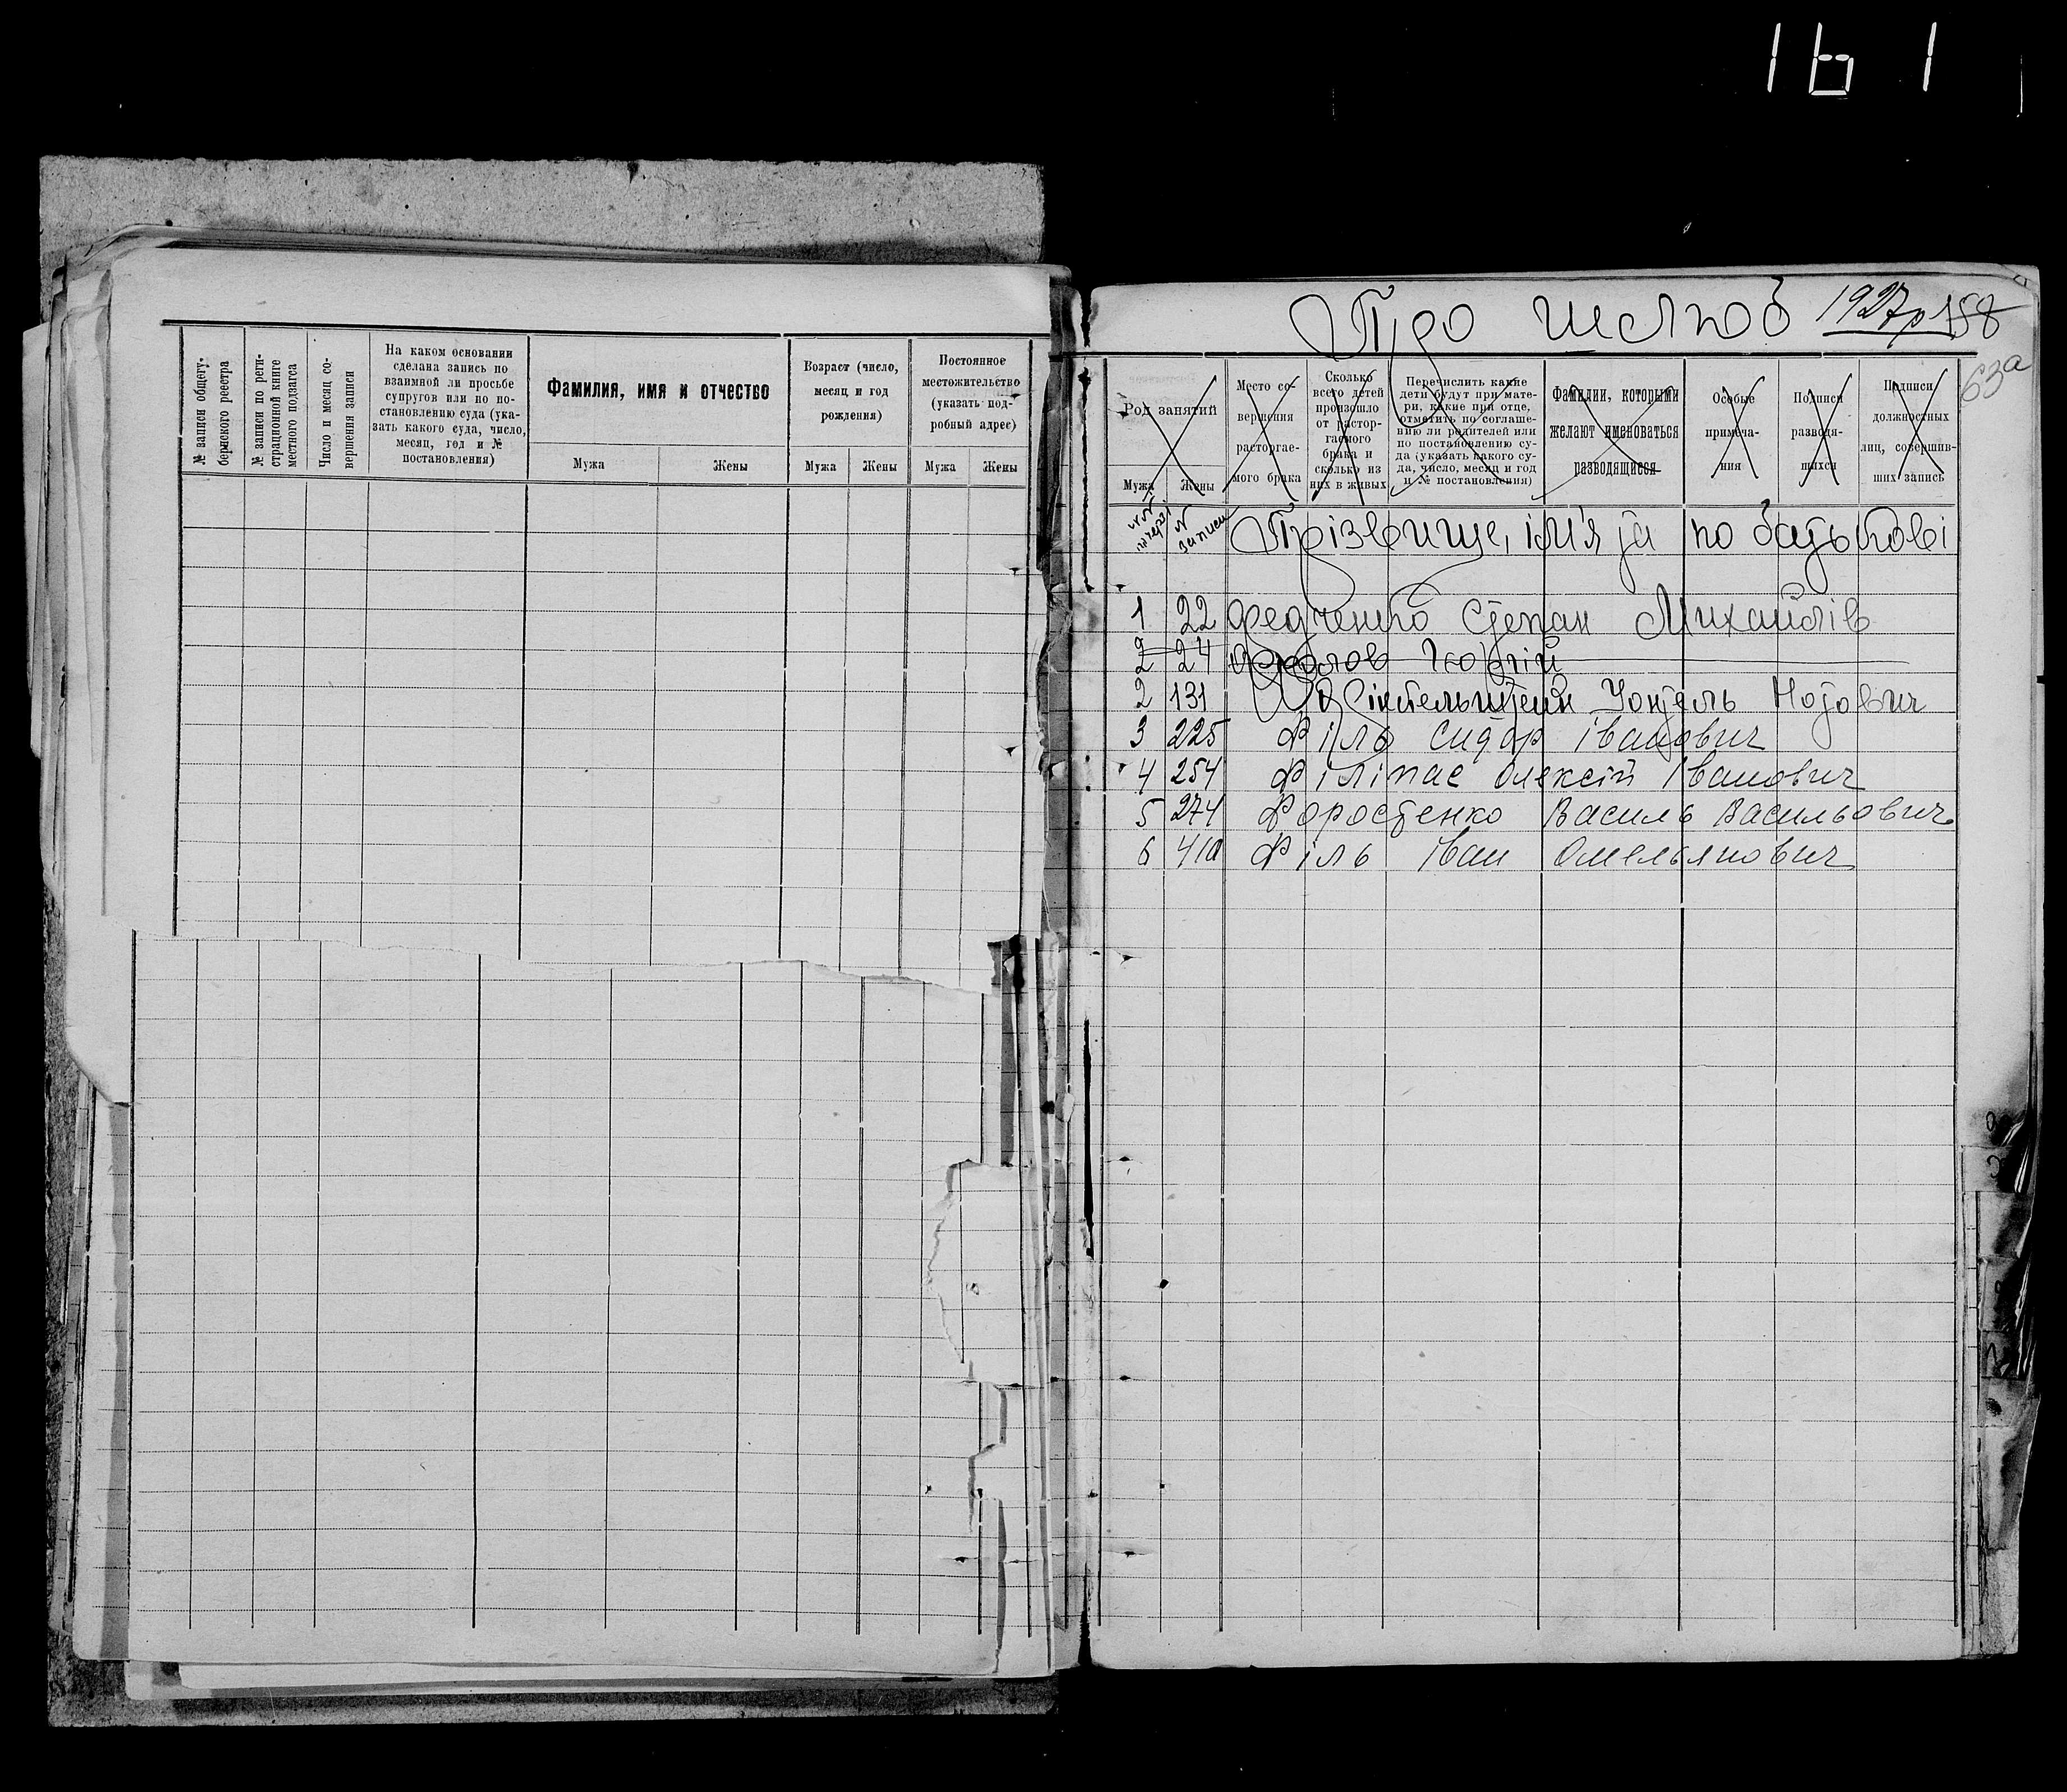 161
№ записи общегу-
бернского реестра
№ записи по реги-
страционной книге
местного подзагса
Число и месяц со-
вершения записи
На каком основании
сделана запись по
взаимной ли просьбе
супругов или по по-
становлению суда (ука-
зать какого суда, число,
месяц, год и №
постановления)
Фамилия, имя и отчество
Мужа
Жены
Возраст (число,
месяц и год
рождения)
Мужа
Жены
Постоянное
местожительство
(указать под-
робный адрес)
Мужа
Жены
Про шлюб 1927 р 158
63а
Род занятий
Мужа
Жены
Место со-
вершения
расторгае-
мого брака
Сколько
всего детей
произошло
от растор-
гаемого
брака и
сколько из
них в живых
Перечислить какие
дети будут при мате-
ри, какие при отце,
отметить по соглаше-
нию ли родителей или
по постановлению су-
да (указать какого су-
да, число, месяц и год
и № постановления)
Фамилии, которыми
желают именоваться
разводящиеся
Особые
примеча-
ния
Подписи
разводя-
щихся
Подписи
должностных
лиц, совершив-
ших запись
№ записи Прізвище, ім'я та по батькові
1 22 Федченко Степан Михайлів
2 24
2 131 Нотович
3 225 Філь Сидор Іванович
4 254 Олексій Іванович
5 274 Форостенко Василь Васильович
6 410 Філь Іван Омелянович